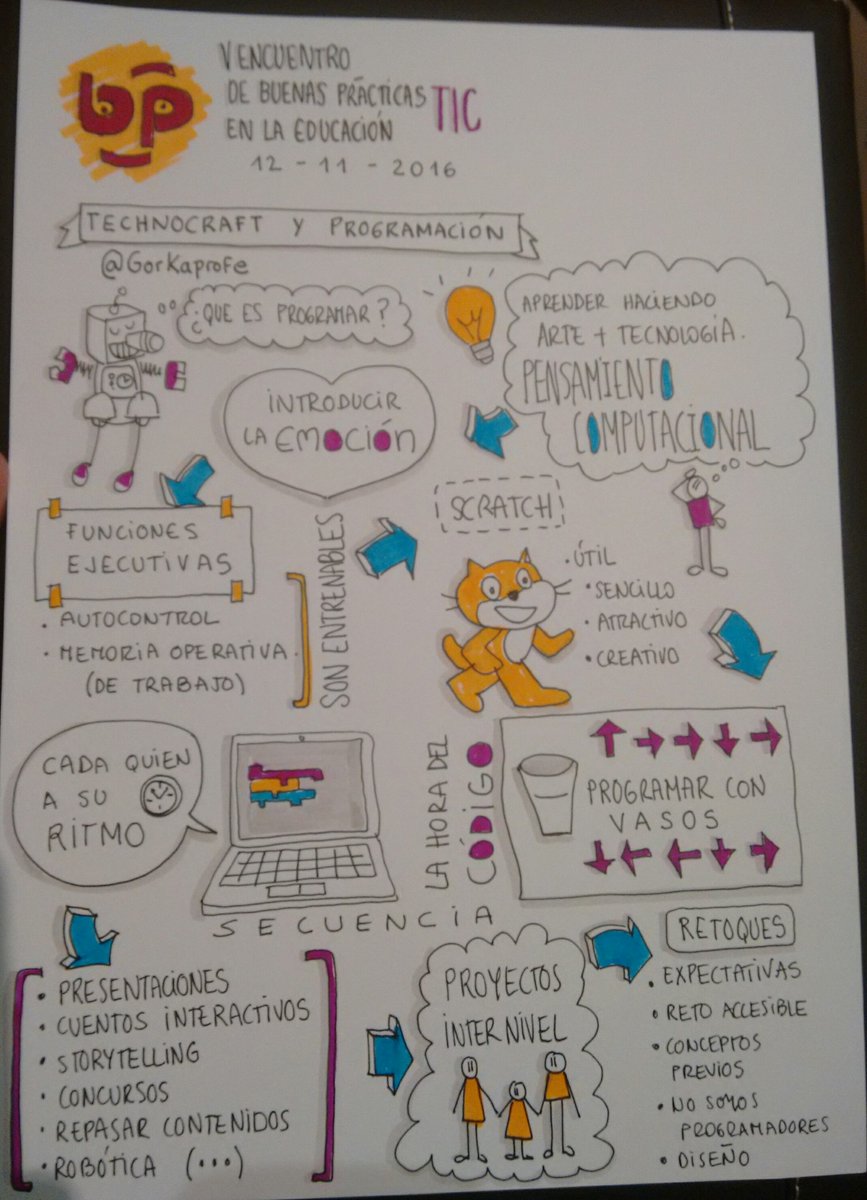 bp
V ENCUENTRO
DE BUENAS PRÁCTICAS TIC
EN LA EDUCACIÓN
12 - 11 - 2016
TECHNOCRAFT Y PROGRAMACIÓN
@GorKaprofe
¿QUE ES PROGRAMAR?
APRENDER HACIENDO
ARTE + TECNOLOGIA.
PENSAMIENTO
COMPUTACIONAL
INTRODUCIR
LA EMOCIÓN
SCRATCH
• ÚTIL
• SENCILLO
• ATRACTIVO
• CREATIVO
FUNCIONES
EJECUTIVAS
• AUTOCONTROL
• MEMORIA OPERATIVA.
(DE TRABAJO)
SON ENTRENABLES
CADA QUIEN
A SU
RITMO
LA HORA DEL
CÓDIGO
PROGRAMAR CON
VASOS
SECUENCIA
• PRESENTACIONES
• CUENTOS INTERACTIVOS
• STORYTELLING
• CONCURSOS
• REPASAR CONTENIDOS
• ROBÓTICA (...)
PROYECTOS
INTERNIVEL
RETOQUES
• EXPECTATIVAS
• RETO ACCESIBLE
• CONCEPTOS
PREVIOS
• NO SOMOS
PROGRAMADORES
• DISEÑO